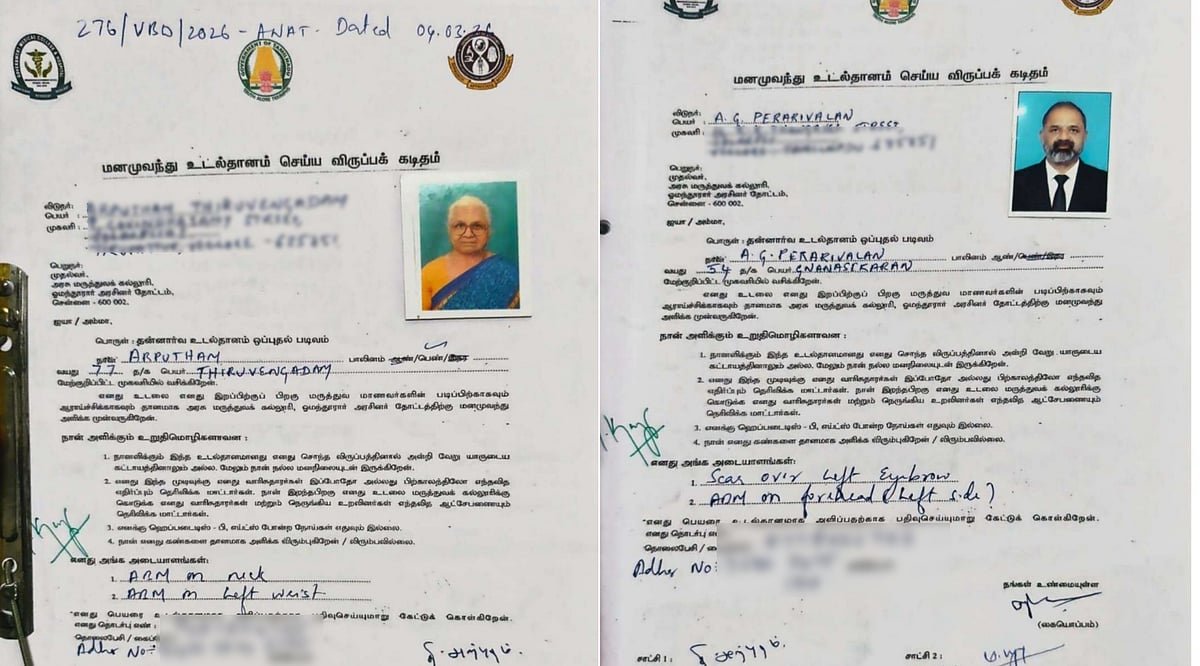 276/VBD/2026 - ANAT. Dated 04.03.26
GOVERNMENT OF TAMILNADU
மனமுவந்து உடல்தானம் செய்ய விருப்பக் கடிதம்
விடுநர்:
பெயர் :
முகவரி :
பெறுநர்:
முதல்வர்,
அரசு மருத்துவக் கல்லூரி,
ஓமந்தூரார் அரசினர் தோட்டம்,
சென்னை - 600 002.
ஐயா / அம்மா,
பொருள் : தன்னார்வ உடல்தானம் ஒப்புதல் படிவம்
நான் ARPUTHAM பாலினம் ஆண்/பெண்/இதர
வயது 77 த/க பெயர் THIRUVENGADAM
மேற்குறிப்பிட்ட முகவரியில் வசிக்கிறேன்.
எனது உடலை எனது இறப்பிற்குப் பிறகு மருத்துவ மாணவர்களின் படிப்பிற்காகவும்
ஆராய்ச்சிக்காகவும் தானமாக அரசு மருத்துவக் கல்லூரி, ஓமந்தூரார் அரசினர் தோட்டத்திற்கு மனமுவந்து
அளிக்க முன்வருகிறேன்.
நான் அளிக்கும் உறுதிமொழிகளாவன :
1. நானளிக்கும் இந்த உடல்தானமானது எனது சொந்த விருப்பத்தினால் அன்றி வேறு யாருடைய
கட்டாயத்தினாலும் அல்ல. மேலும் நான் நல்ல மனநிலையுடன் இருக்கிறேன்.
2. எனது இந்த முடிவுக்கு எனது வாரிசுதாரர்கள் இப்போதோ அல்லது பிற்காலத்திலோ எந்தவித
எதிர்ப்பும் தெரிவிக்க மாட்டார்கள். நான் இறந்தபிறகு எனது உடலை மருத்துவக் கல்லூரிக்கு
கொடுக்க எனது வாரிசுதாரர்கள் மற்றும் நெருங்கிய உறவினர்கள் எந்தவித ஆட்சேபணையும்
தெரிவிக்க மாட்டார்கள்.
3. எனக்கு ஹெப்படைடிஸ் - பி, எய்ட்ஸ் போன்ற நோய்கள் எதுவும் இல்லை.
4. நான் எனது கண்களை தானமாக அளிக்க விரும்புகிறேன் / விரும்பவில்லை.
எனது அங்க அடையாளங்கள்:
1. ARM on neck
2. ARM on left wrist
எனது பெயரை பதிவுசெய்யுமாறு கேட்டுக் கொள்கிறேன்.
எனது தொடர்பு எண் :
தொலைபேசி /
Adhr No:
தி. அற்புதம்.
மனமுவந்து உடல்தானம் செய்ய விருப்பக் கடிதம்
விடுநர்:
பெயர் : A. G. PERARIVALAN
முகவரி :
பெறுநர்:
முதல்வர்,
அரசு மருத்துவக் கல்லூரி,
ஓமந்தூரார் அரசினர் தோட்டம்,
சென்னை - 600 002.
ஐயா / அம்மா,
பொருள் : தன்னார்வ உடல்தானம் ஒப்புதல் படிவம்
நான் A. G. PERARIVALAN பாலினம் ஆண்/பெண்/இதர
வயது 54 த/க பெயர் GNANASEKARAN
மேற்குறிப்பிட்ட முகவரியில் வசிக்கிறேன்.
எனது உடலை எனது இறப்பிற்குப் பிறகு மருத்துவ மாணவர்களின் படிப்பிற்காகவும்
ஆராய்ச்சிக்காகவும் தானமாக அரசு மருத்துவக் கல்லூரி, ஓமந்தூரார் அரசினர் தோட்டத்திற்கு மனமுவந்து
அளிக்க முன்வருகிறேன்.
நான் அளிக்கும் உறுதிமொழிகளாவன :
1. நானளிக்கும் இந்த உடல்தானமானது எனது சொந்த விருப்பத்தினால் அன்றி வேறு யாருடைய
கட்டாயத்தினாலும் அல்ல. மேலும் நான் நல்ல மனநிலையுடன் இருக்கிறேன்.
2. எனது இந்த முடிவுக்கு எனது வாரிசுதாரர்கள் இப்போதோ அல்லது பிற்காலத்திலோ எந்தவித
எதிர்ப்பும் தெரிவிக்க மாட்டார்கள். நான் இறந்தபிறகு எனது உடலை மருத்துவக் கல்லூரிக்கு
கொடுக்க எனது வாரிசுதாரர்கள் மற்றும் நெருங்கிய உறவினர்கள் எந்தவித ஆட்சேபணையும்
தெரிவிக்க மாட்டார்கள்.
3. எனக்கு ஹெப்படைடிஸ் - பி, எய்ட்ஸ் போன்ற நோய்கள் எதுவும் இல்லை.
4. நான் எனது கண்களை தானமாக அளிக்க விரும்புகிறேன் / விரும்பவில்லை.
எனது அங்க அடையாளங்கள்:
1. Scar over left Eyebrow
2. ARM on forehead (left side)
எனது பெயரை உடல்தானமாக அளிப்பதற்காக பதிவுசெய்யுமாறு கேட்டுக் கொள்கிறேன்.
எனது தொடர்பு எண்
தொலைபேசி /
Adhr No:
தங்கள் உண்மையுள்ள
(கையொப்பம்)
சாட்சி 1 : தி. அற்புதம்.
சாட்சி 2 :